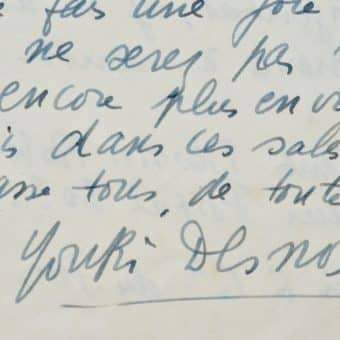 fais une joie
ne serez pas
encore plus en v
s dans ces sales
asse tous, de toute
Youki Desnos